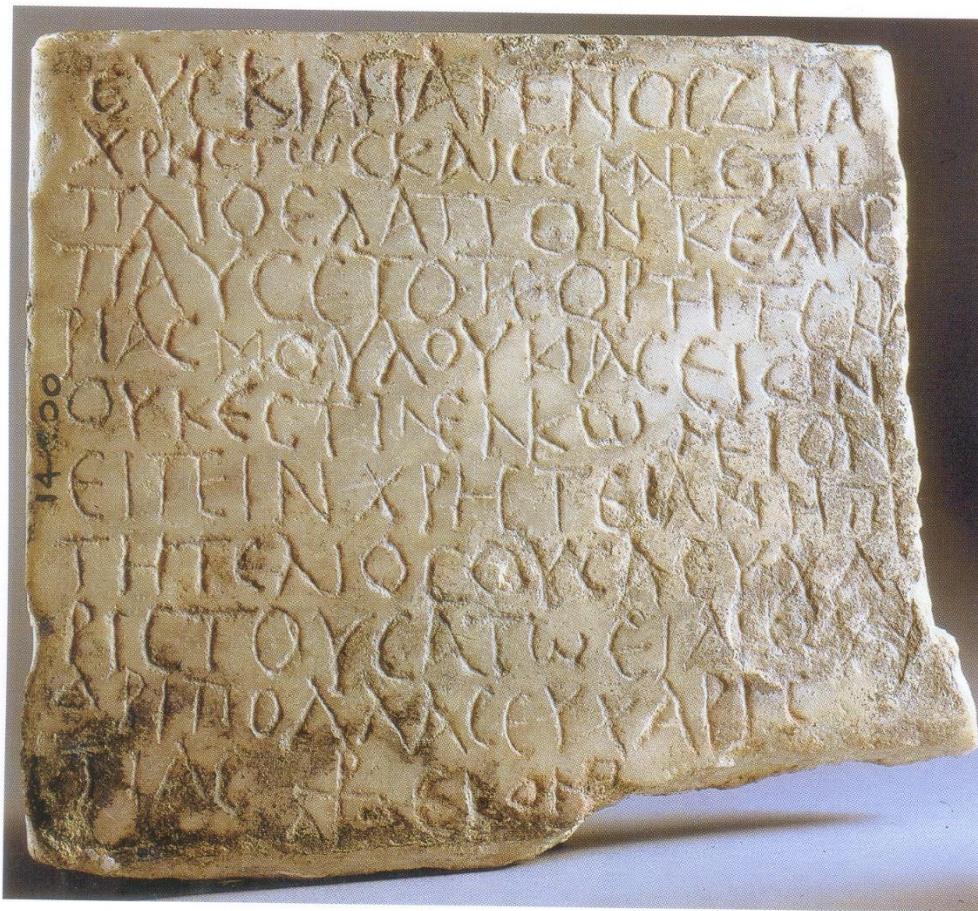 ΕΥCΚΙΑΗΑΜΕΝΟCΖΗCΑ
ΧΡΗCΤωCΚΑΙCΕΜΝΡΕΤΗ
ΠΛΙΟΕΛΑΤΤΟΝΚΕΑΝΕ
ΠΑΥCΕΤΟΤΕΟΡΤΗΤΗCΚΥ
ΡΙΑCΜΟΥΛΟΥΚΙΑCΕΙCΗΝ
ΟΥΚΕCΤΙΝΕΝΚωΜΕΙΟΝ
ΕΙΠΕΙΝΧΡΗCΤΕΙΑΝΗΠΙC
ΤΗΤΕΛΙΟCΟΥCΑΕΥΧΑ
ΡΙCΤΟΥCΑΤωΕΙΔΙΟΑΝ
ΔΡΙΠΟΛΛΑCΕΥΧΑΡΙC
ΤΙΑC